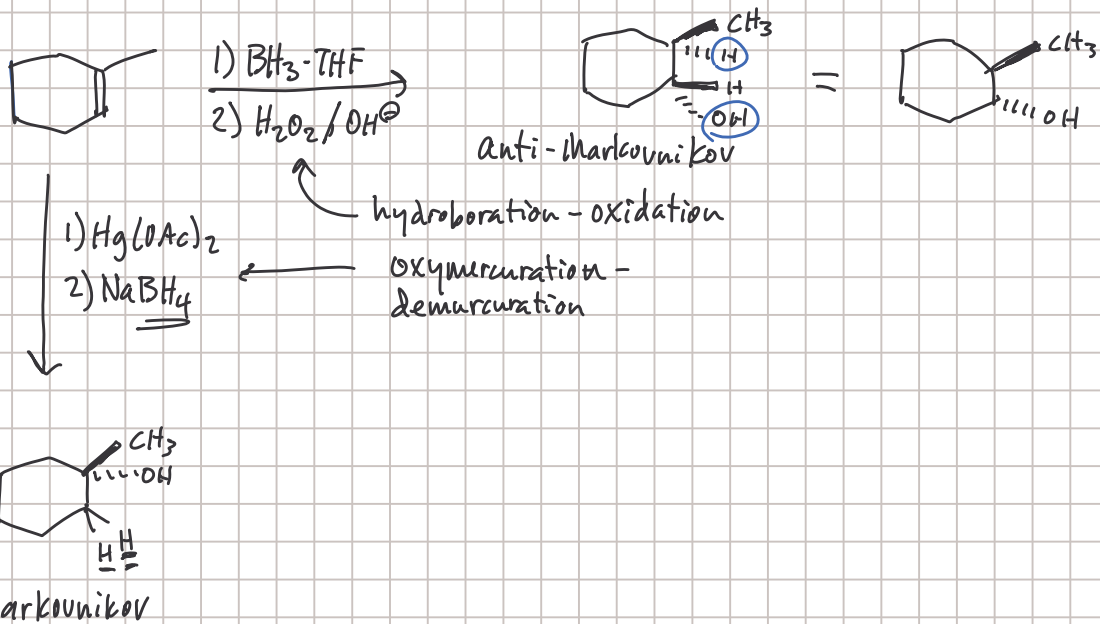 1) BH3·THF
2) H2O2/OH⊖
CH3
H
H
OH
anti-Markovnikov
=
CH3
OH
hydroboration-oxidation
1) Hg(OAc)2
2) NaBH4
oxymercuration-
demurcuration
CH3
OH
H H
arkovnikov